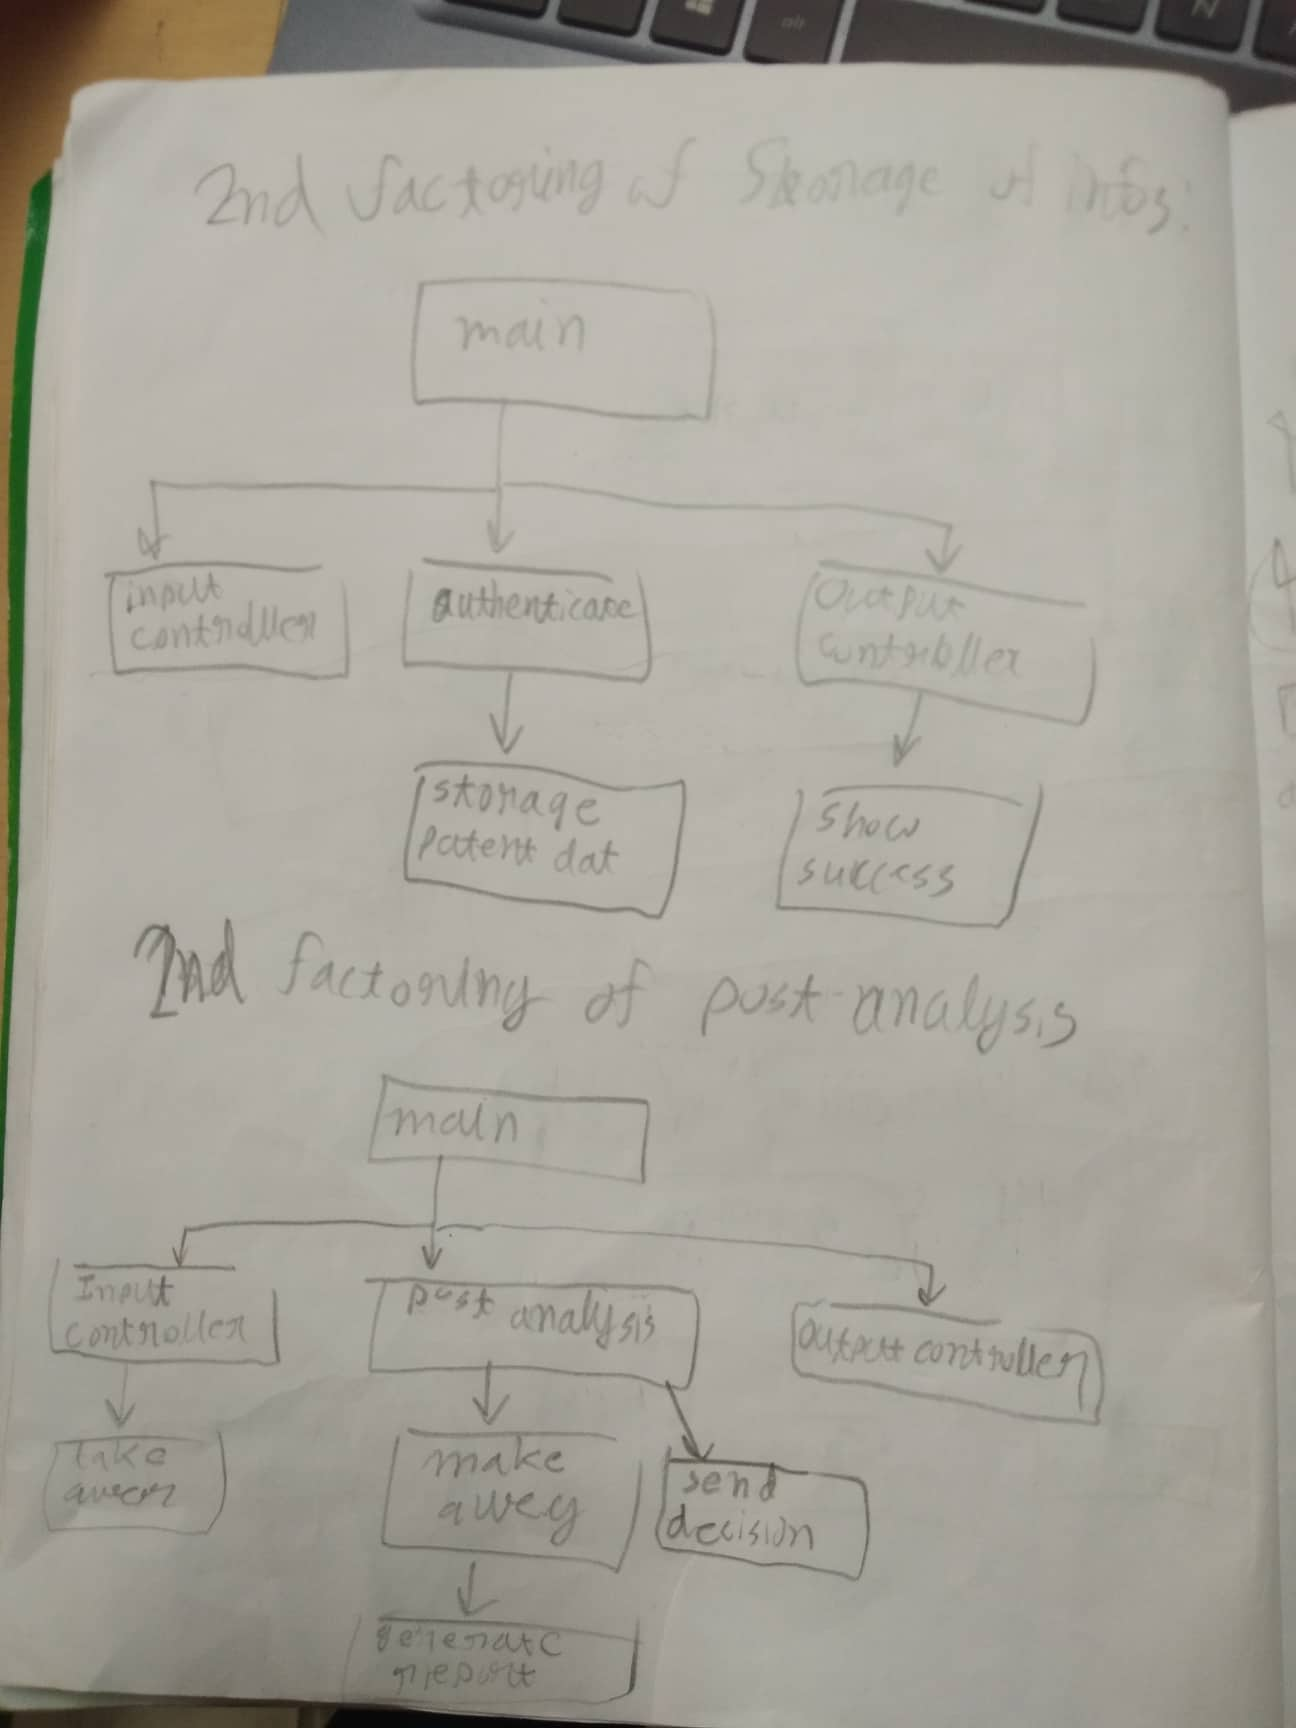 2nd factoring of Storage of infos:
main
input
controller
authenticate
Output
controller
storage
patent dat
show
success
2nd factoring of post-analysis
main
Input
controller
post analysis
output controller
take
make
send
decision
generate
report